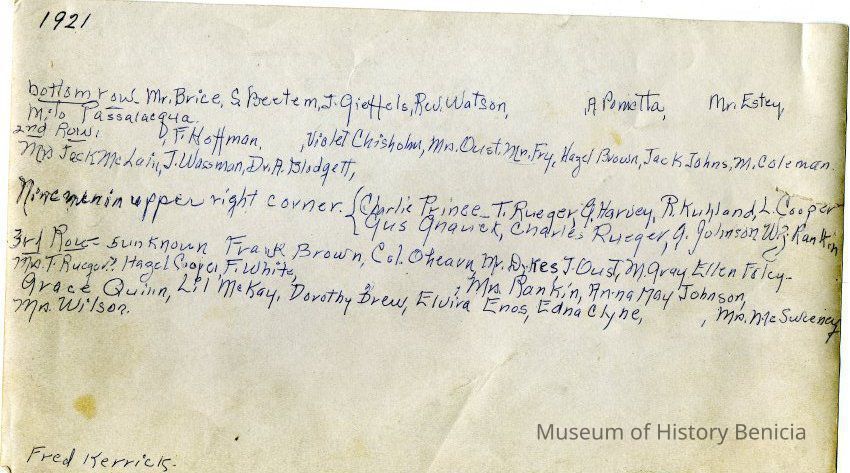 1921
bottom row. Mr. Brice, S. Beetem, J. Gieffels, Rev. Watson, , A Pometta, Mr. Estey,
Milo Passalacqua.
2nd Row: D, F. Hoffman, , Violet Chisholm, Mrs. Oust. Mr. Fry, Hazel Brown, Jack Johns, M. Coleman.
Mrs Jack McLain, J. Wassman, Dr. A. Blodgett,
Nine men in upper right corner. { Charlie Prince - T. Rueger, G. Harvey, R Kuhland, L. Cooper
Gus Gnauck, Charles Rueger, J. Johnson W. Rankin
3rd Row - unknown Frank Brown, Col. Ohearn, Mr. Dykes J. Oust, M Gray Ellen Foley -
Mrs. T. Rueger? Hazel Cooper, F. White,
Grace Quinn, Lil McKay, Dorothy Brew, Elvira Enos, Edna Clyne, , Mrs. McSweeney
; Mrs Rankin, Anna May Johnson,
Mrs. Wilson.
Museum of History Benicia
Fred Kerrick.